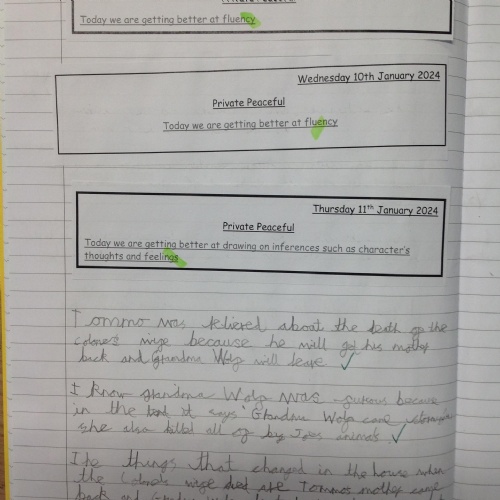 Today we are getting better at fluency
Wednesday 10th January 2024
Private Peaceful
Today we are getting better at fluency
Thursday 11th January 2024
Private Peaceful
Today we are getting better at drawing on inferences such as character's
thoughts and feelings
Tommo was relieved about the death of the
because he will get his mother
back and Grandma Wolf will leave ✓
I know grandma Wolf was furious because
in the text it says' Grandma Wolf came
she also killed all of big Joes animals ✓
I the things that changed in the house when
the are Tommos mother came
back and